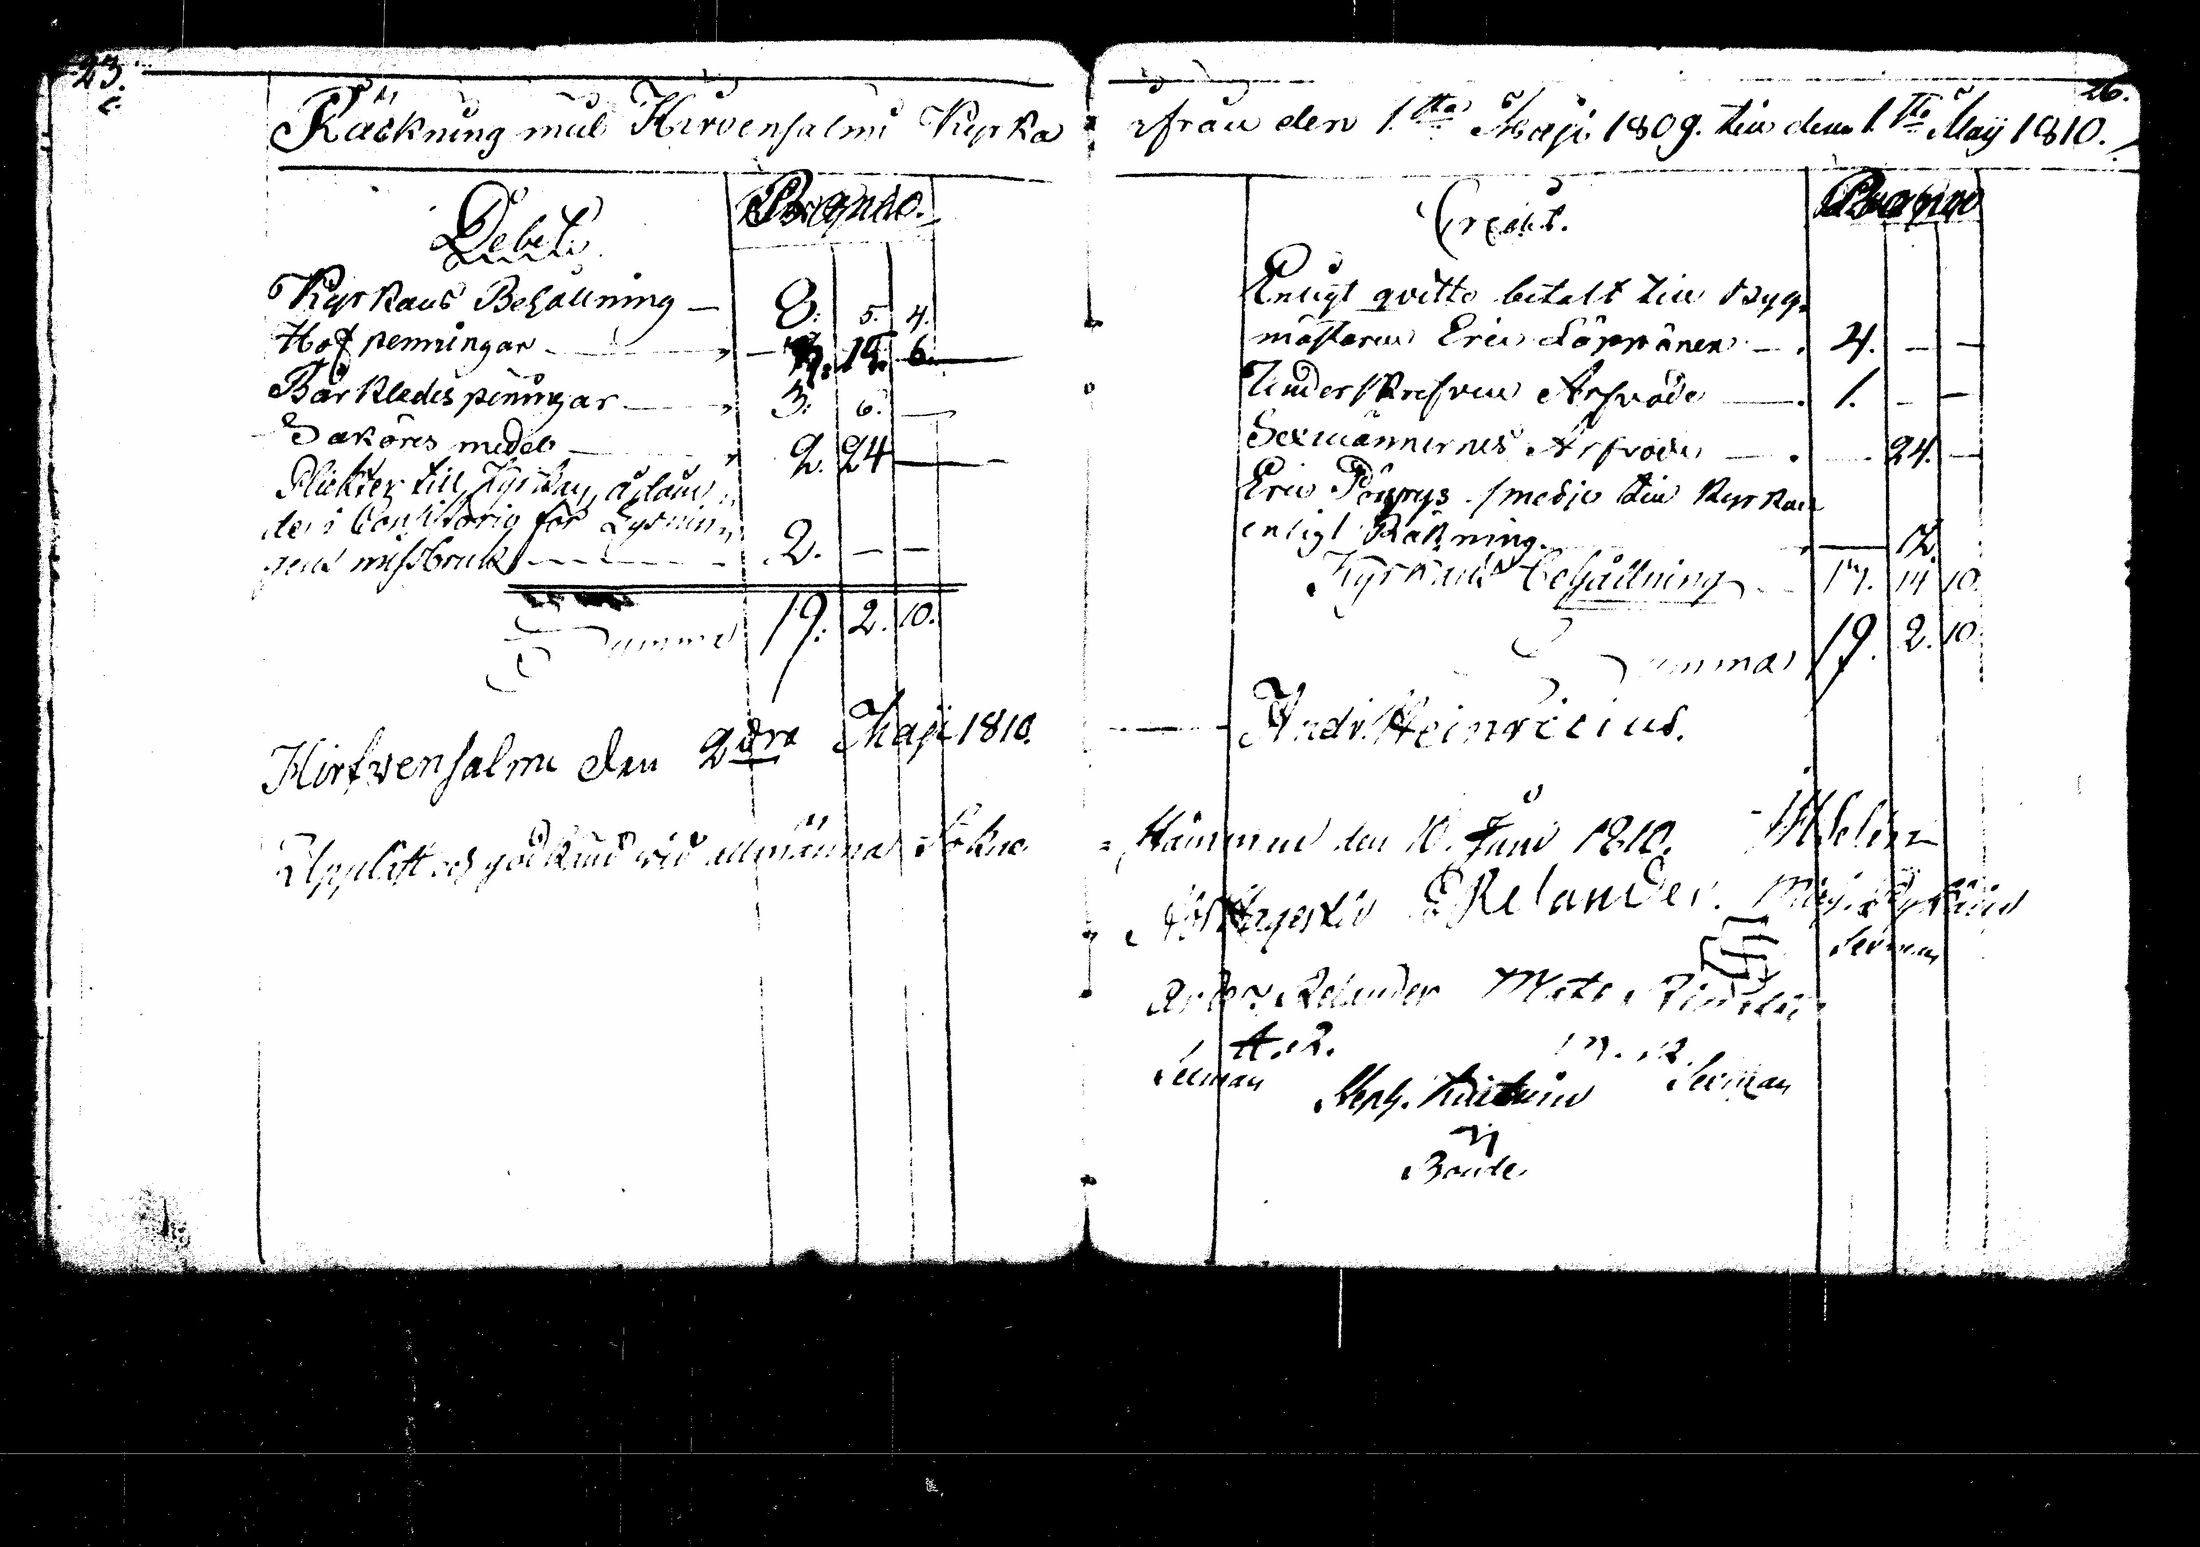 25.
26.
Räckning med Hirvensalmi Kyrka ifrån den 1.sta Maji 1809. till den 1.sta Maij 1810.
Debet.
Banco.
Kyrkans Behållning — 8. 5. 4.
Håf penningar — 3. 13. 6.
Bårkledes peningar — 3. 6. —
Saköres medel — 2. 24 —
Plickter till Kyrkan, ådöm
de i Consistorio för Lysnin
gens missbruk — 2. — —
Summa 19. 2. 10.
Hirfvensalmi den 2dra Maji 1810.
Credit.
Banco
Enligt qvitto betalt till Byg-
mästaren Eric Löppönen — 4. — —
Underskrefven Arfvode — 1. — —
Sexmännernes Arfvode — 24. —
Eric Pöyrys smedje till Kyrkan
enligt Räkning. — 12.
Kyrkans behållning — 14. 10.
Summa 19. 2. 10.
Andr. Heinricius.
Uppläst och godkänd vid allmänna Sokne
Stämman den 10. Juni 1810.
Relander.
Sexman
Relander Matts
A. R.
Sexman
Sexman
Steph.
Bonde